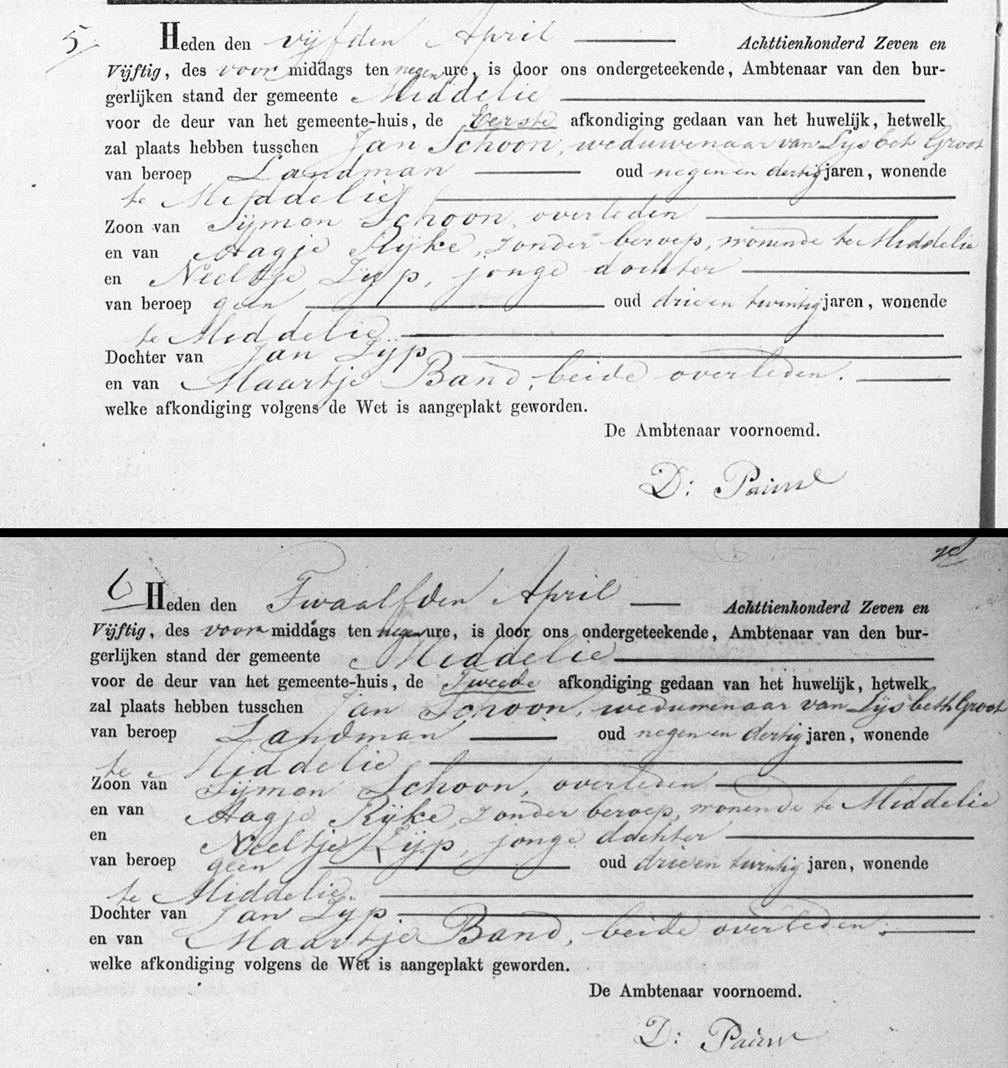 5
Heden den vijfden April Achttienhonderd Zeven en
Vijftig, des voormiddags ten negen ure, is door ons ondergeteekende, Ambtenaar van den bur-
gerlijken stand der gemeente Middelie
voor de deur van het gemeente-huis, de Eerste afkondiging gedaan van het huwelijk, hetwelk
zal plaats hebben tusschen Jan Schoon, weduwenaar van Lijsbeth Groot
van beroep Landman oud negen en dertig jaren, wonende
te Middelie
Zoon van Sijmon Schoon, overleden
en van Aagje Rijke, zonder beroep, wonende te Middelie
en Neeltje Lijp, jonge dochter
van beroep geen oud drie en twintig jaren, wonende
te Middelie
Dochter van Jan Lijp
en van Maartje Band, beide overleden.
welke afkondiging volgens de Wet is aangeplakt geworden.
De Ambtenaar voornoemd.
D: Pauw
6
Heden den Twaalfden April Achttienhonderd Zeven en
Vijftig, des voormiddags ten negen ure, is door ons ondergeteekende, Ambtenaar van den bur-
gerlijken stand der gemeente Middelie
voor de deur van het gemeente-huis, de Tweede afkondiging gedaan van het huwelijk, hetwelk
zal plaats hebben tusschen Jan Schoon, weduwenaar van Lijsbeth Groot
van beroep Landman oud negen en dertig jaren, wonende
te Middelie
Zoon van Sijmon Schoon, overleden
en van Aagje Rijke, zonder beroep, wonende te Middelie
en Neeltje Lijp, jonge dochter
van beroep geen oud drie en twintig jaren, wonende
te Middelie
Dochter van Jan Lijp
en van Maartje Band, beide overleden.
welke afkondiging volgens de Wet is aangeplakt geworden.
De Ambtenaar voornoemd.
D: Pauw